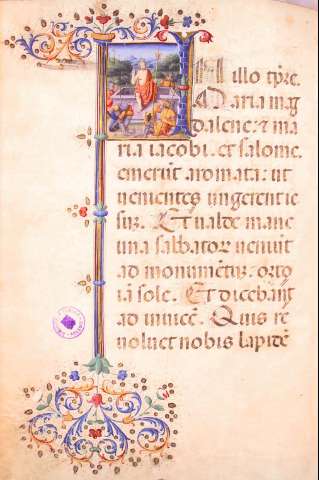 N illo tp̄re.
Maria mag
dalene: & ma
ria iacobi. et salome.
emerūt aromata: ut
uenientes ungerent ie
sum. Et ualde mane
una sabbatoꝝ ueniūt
ad monumētū. orto
iā sole. Et dicebāt
ad inuicē. Quis re
uoluet nobis lapidē